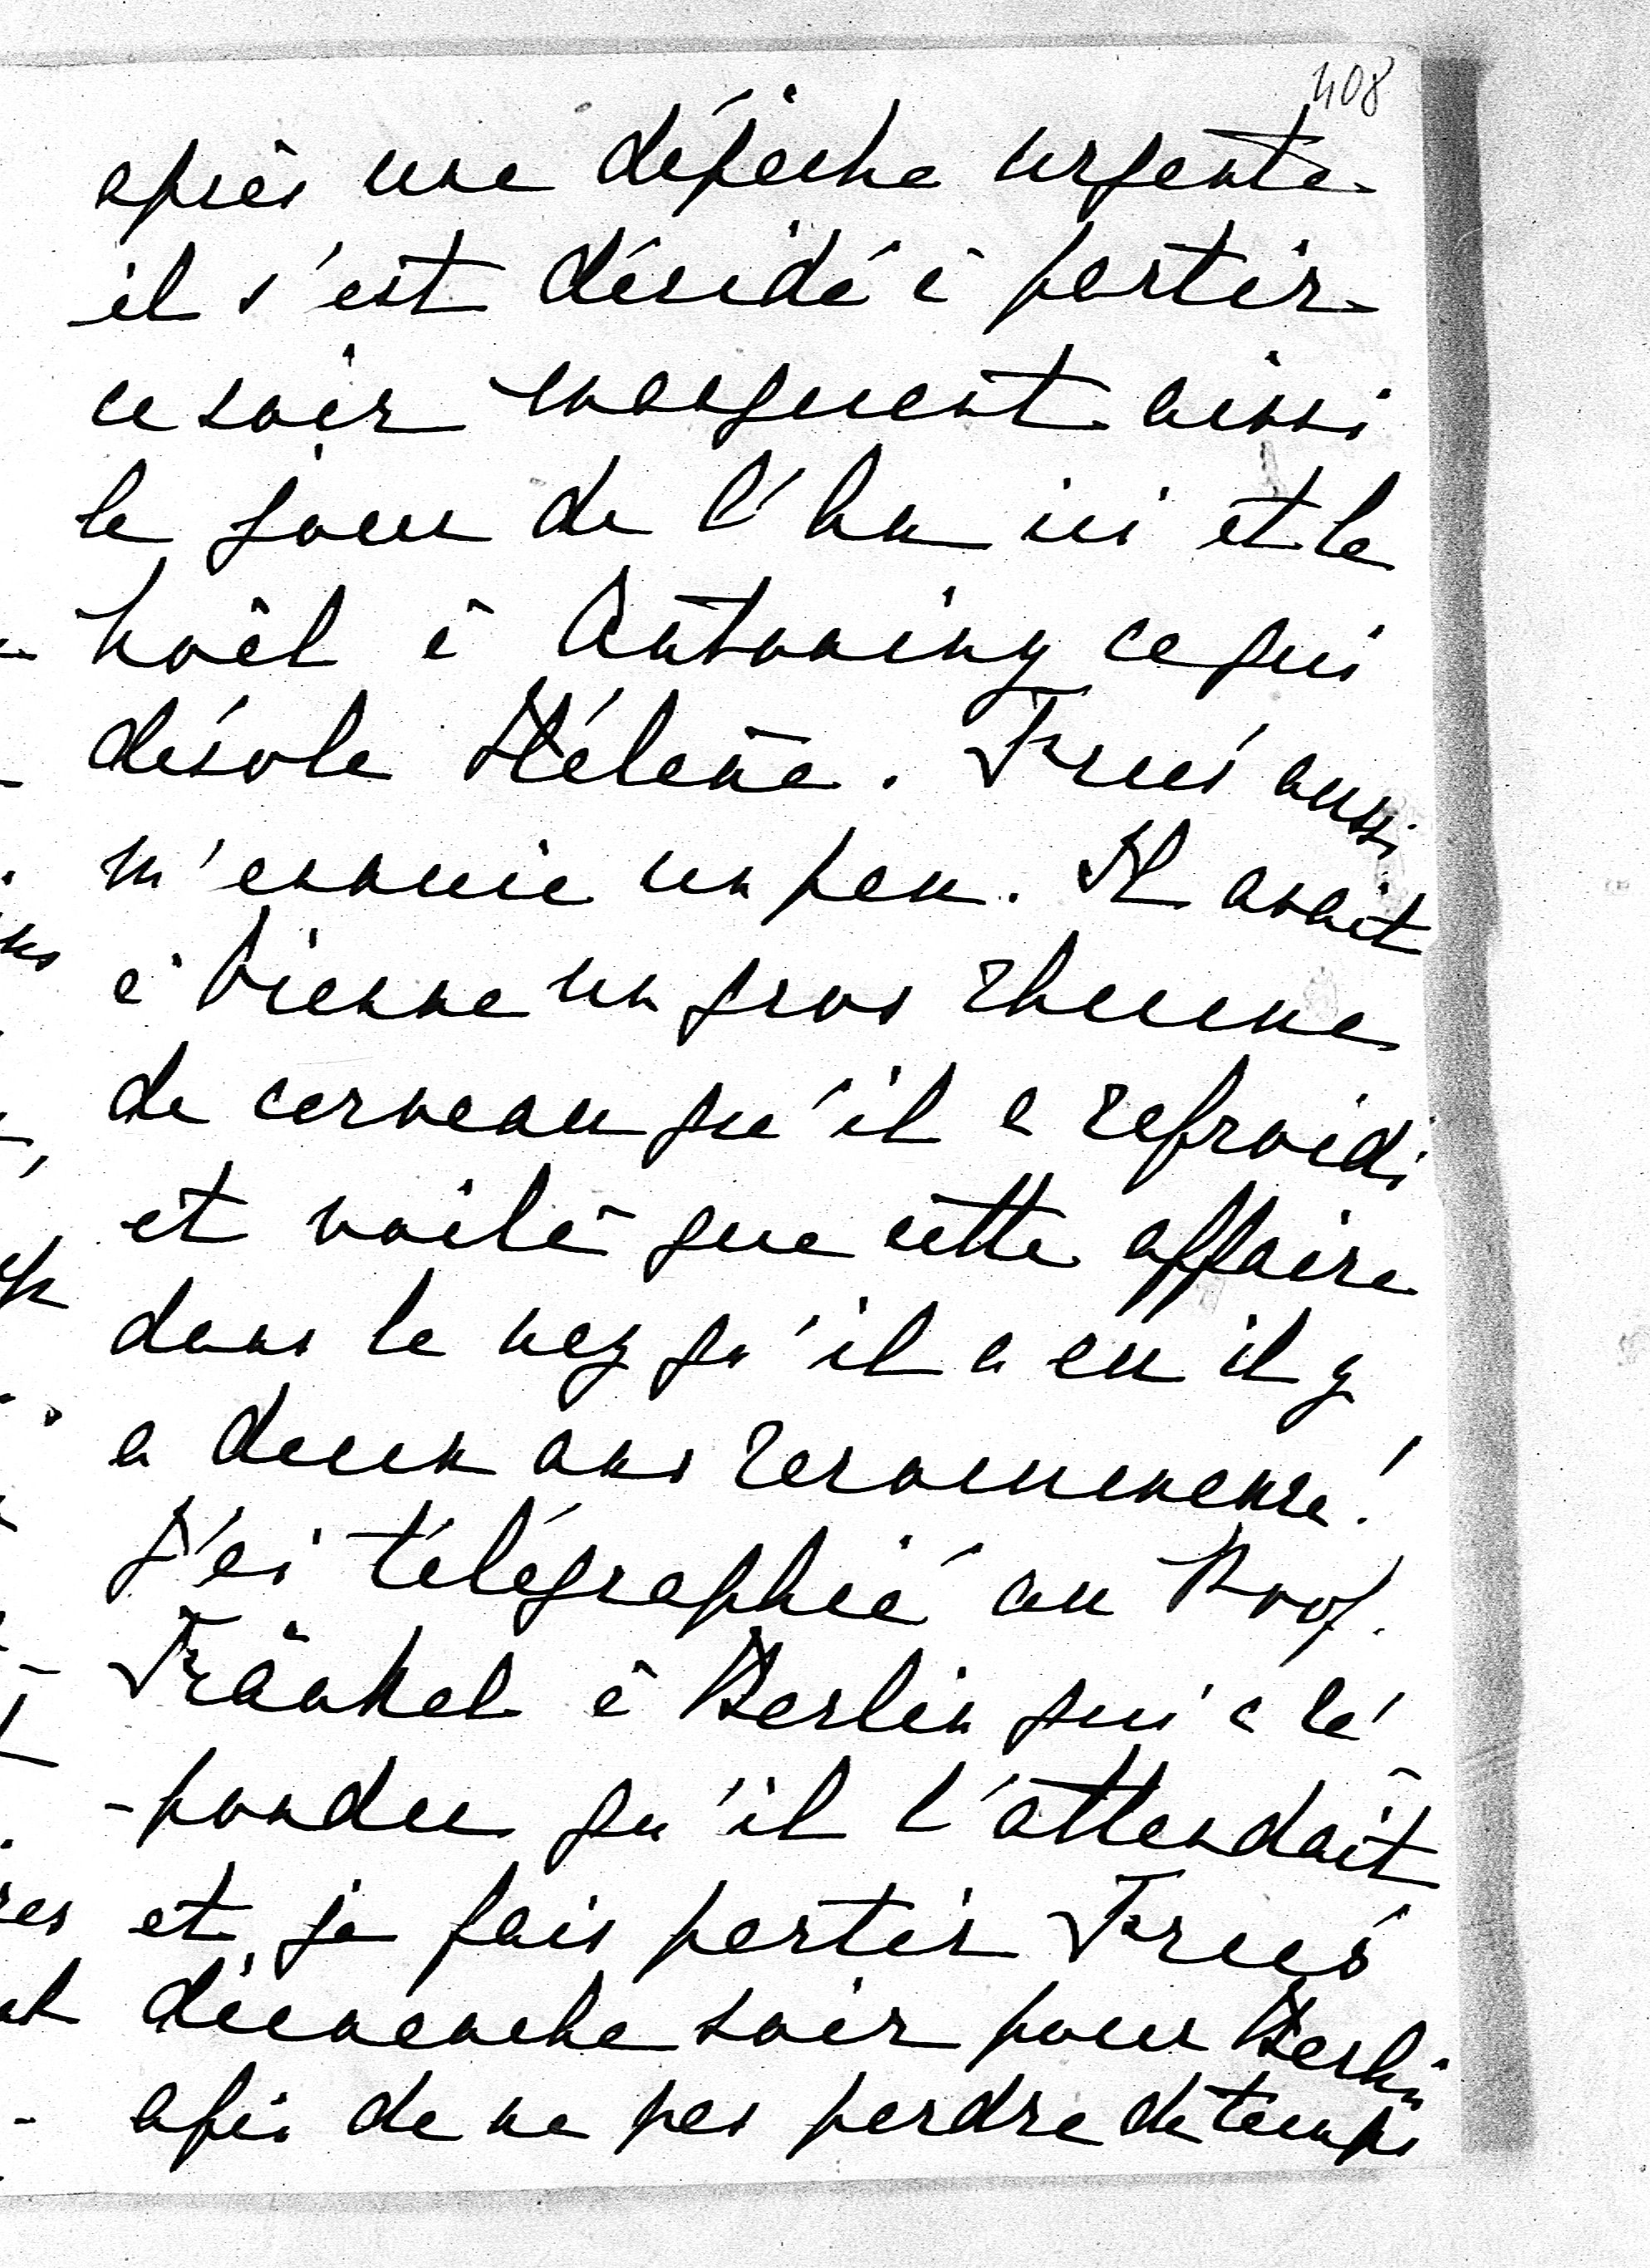 408
après une dépêche urgente
il s'est décidé à partir
ce soir manquant ainsi
le jour de l'An ici et le
Noël à Antoniny ce qui
désole Hélène. Fruś aussi
m'ennuie un peu. Il avait
à Vienne un gros rhume
de cerveau qu'il a refroidi
et voilà que cette affaire
dans le nez qu'il a eu il y
a deux ans recommence!
J'ai télégraphié au Prof.
Fränkel à Berlin qui a ré
-pondu qu'il l'attendait
et je fais partir Fruś
dimanche soir pour Berlin
afin de ne pas perdre de temps